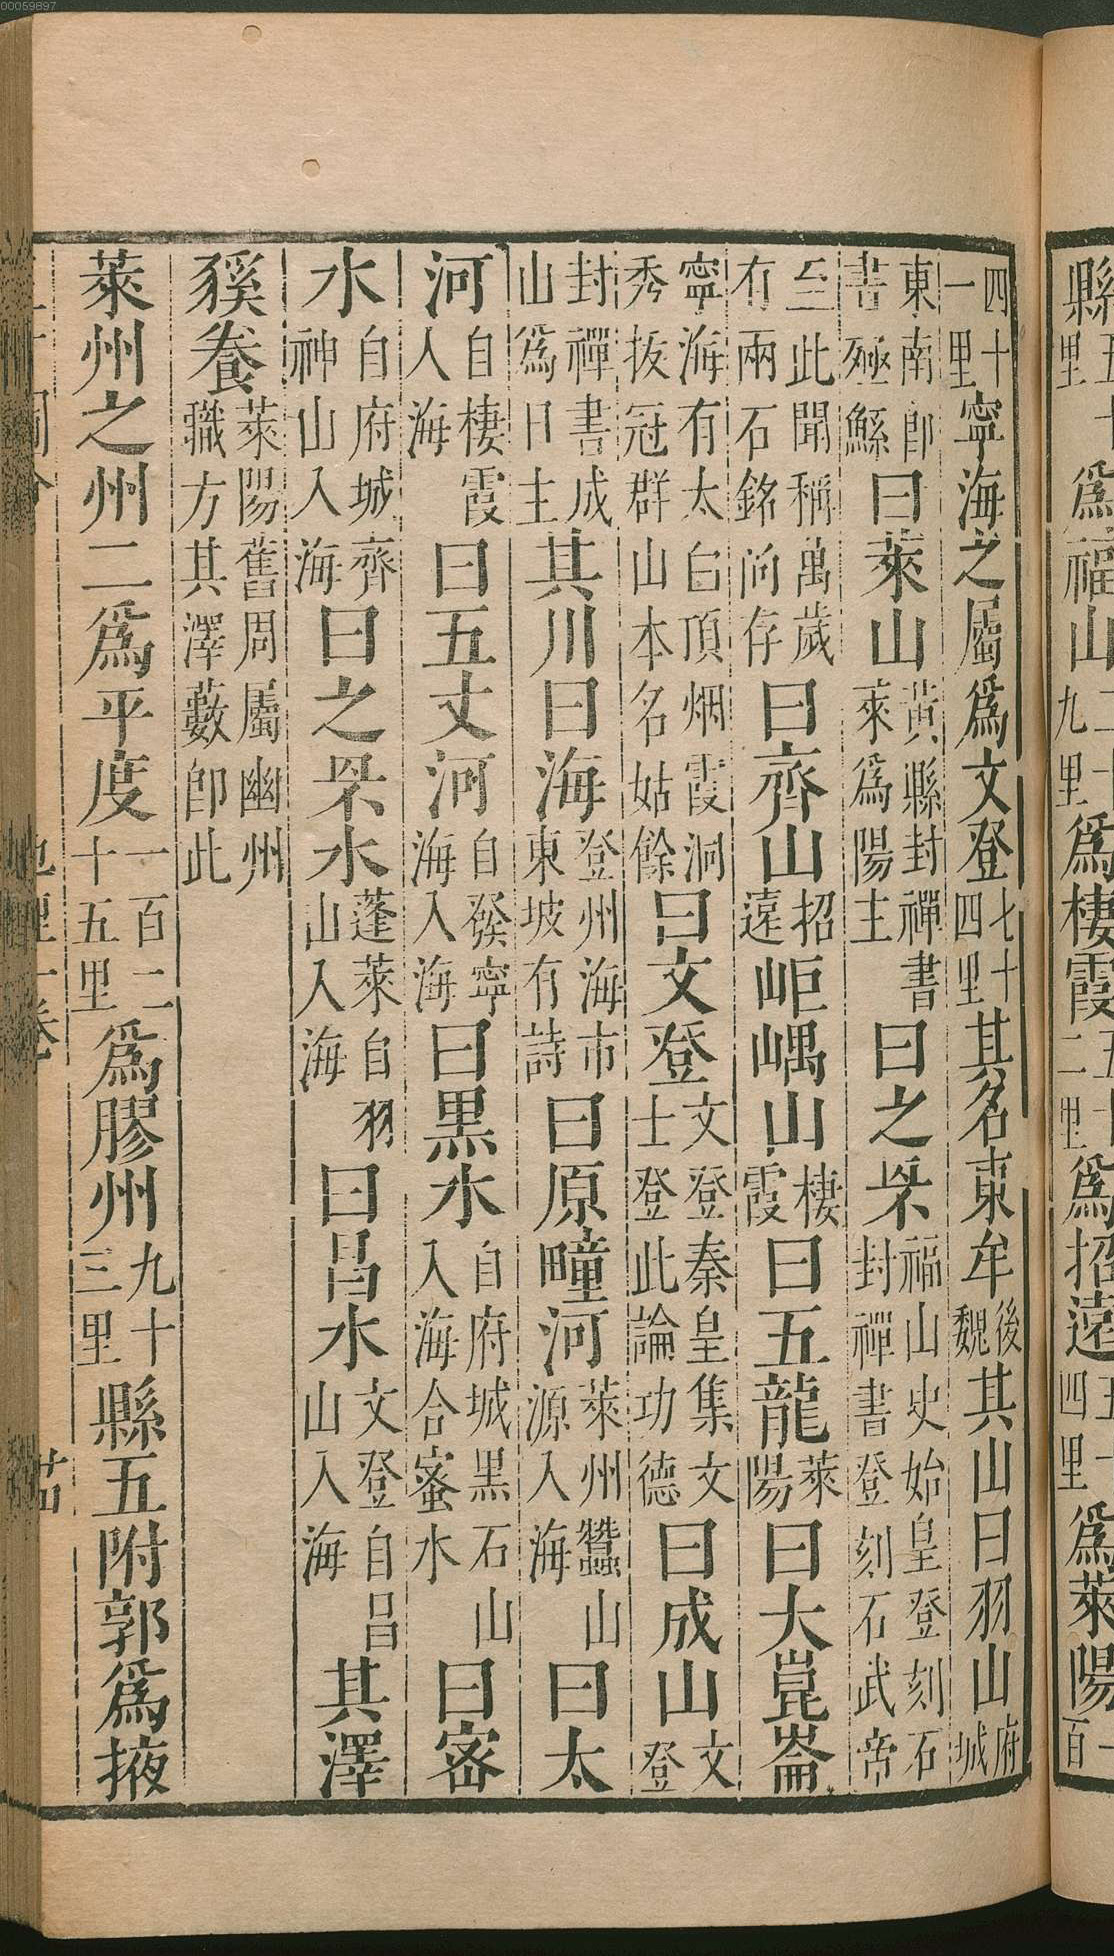 00059897
縣五十里為福山二十九里為棲霞五十二里為招遠五十四里為萊陽一百
四十一里寧海之屬為文登七十四里其名東牟後魏其山曰羽山府城
東南卽書殛鯀曰萊山黃縣封禪書萊為陽主曰之罘福山史始皇登刻石封禪書登刻石武帝
至此聞稱萬歲有兩石銘尚存曰齊山招遠岠嵎山棲霞曰五龍萊陽曰大崑崙
寧海有太白頂烟霞洞秀拔冠群山本名姑餘曰文登文登秦皇集文士登此論功德曰成山文登
封禪書成山為日主其川曰海登州海市東坡有詩曰原疃河萊州蠶山源入海曰太
河自棲霞入海曰五丈河自發寧海入海曰黑水自府城黑石山入海合蜜水曰密
水自府城齊神山入海曰之罘水蓬萊自羽山入海曰昌水文登自昌山入海其澤
豯養萊陽舊周屬幽州職方其澤藪卽此
萊州之州二為平度一百二十五里為膠州九十三里縣五附郭為掖